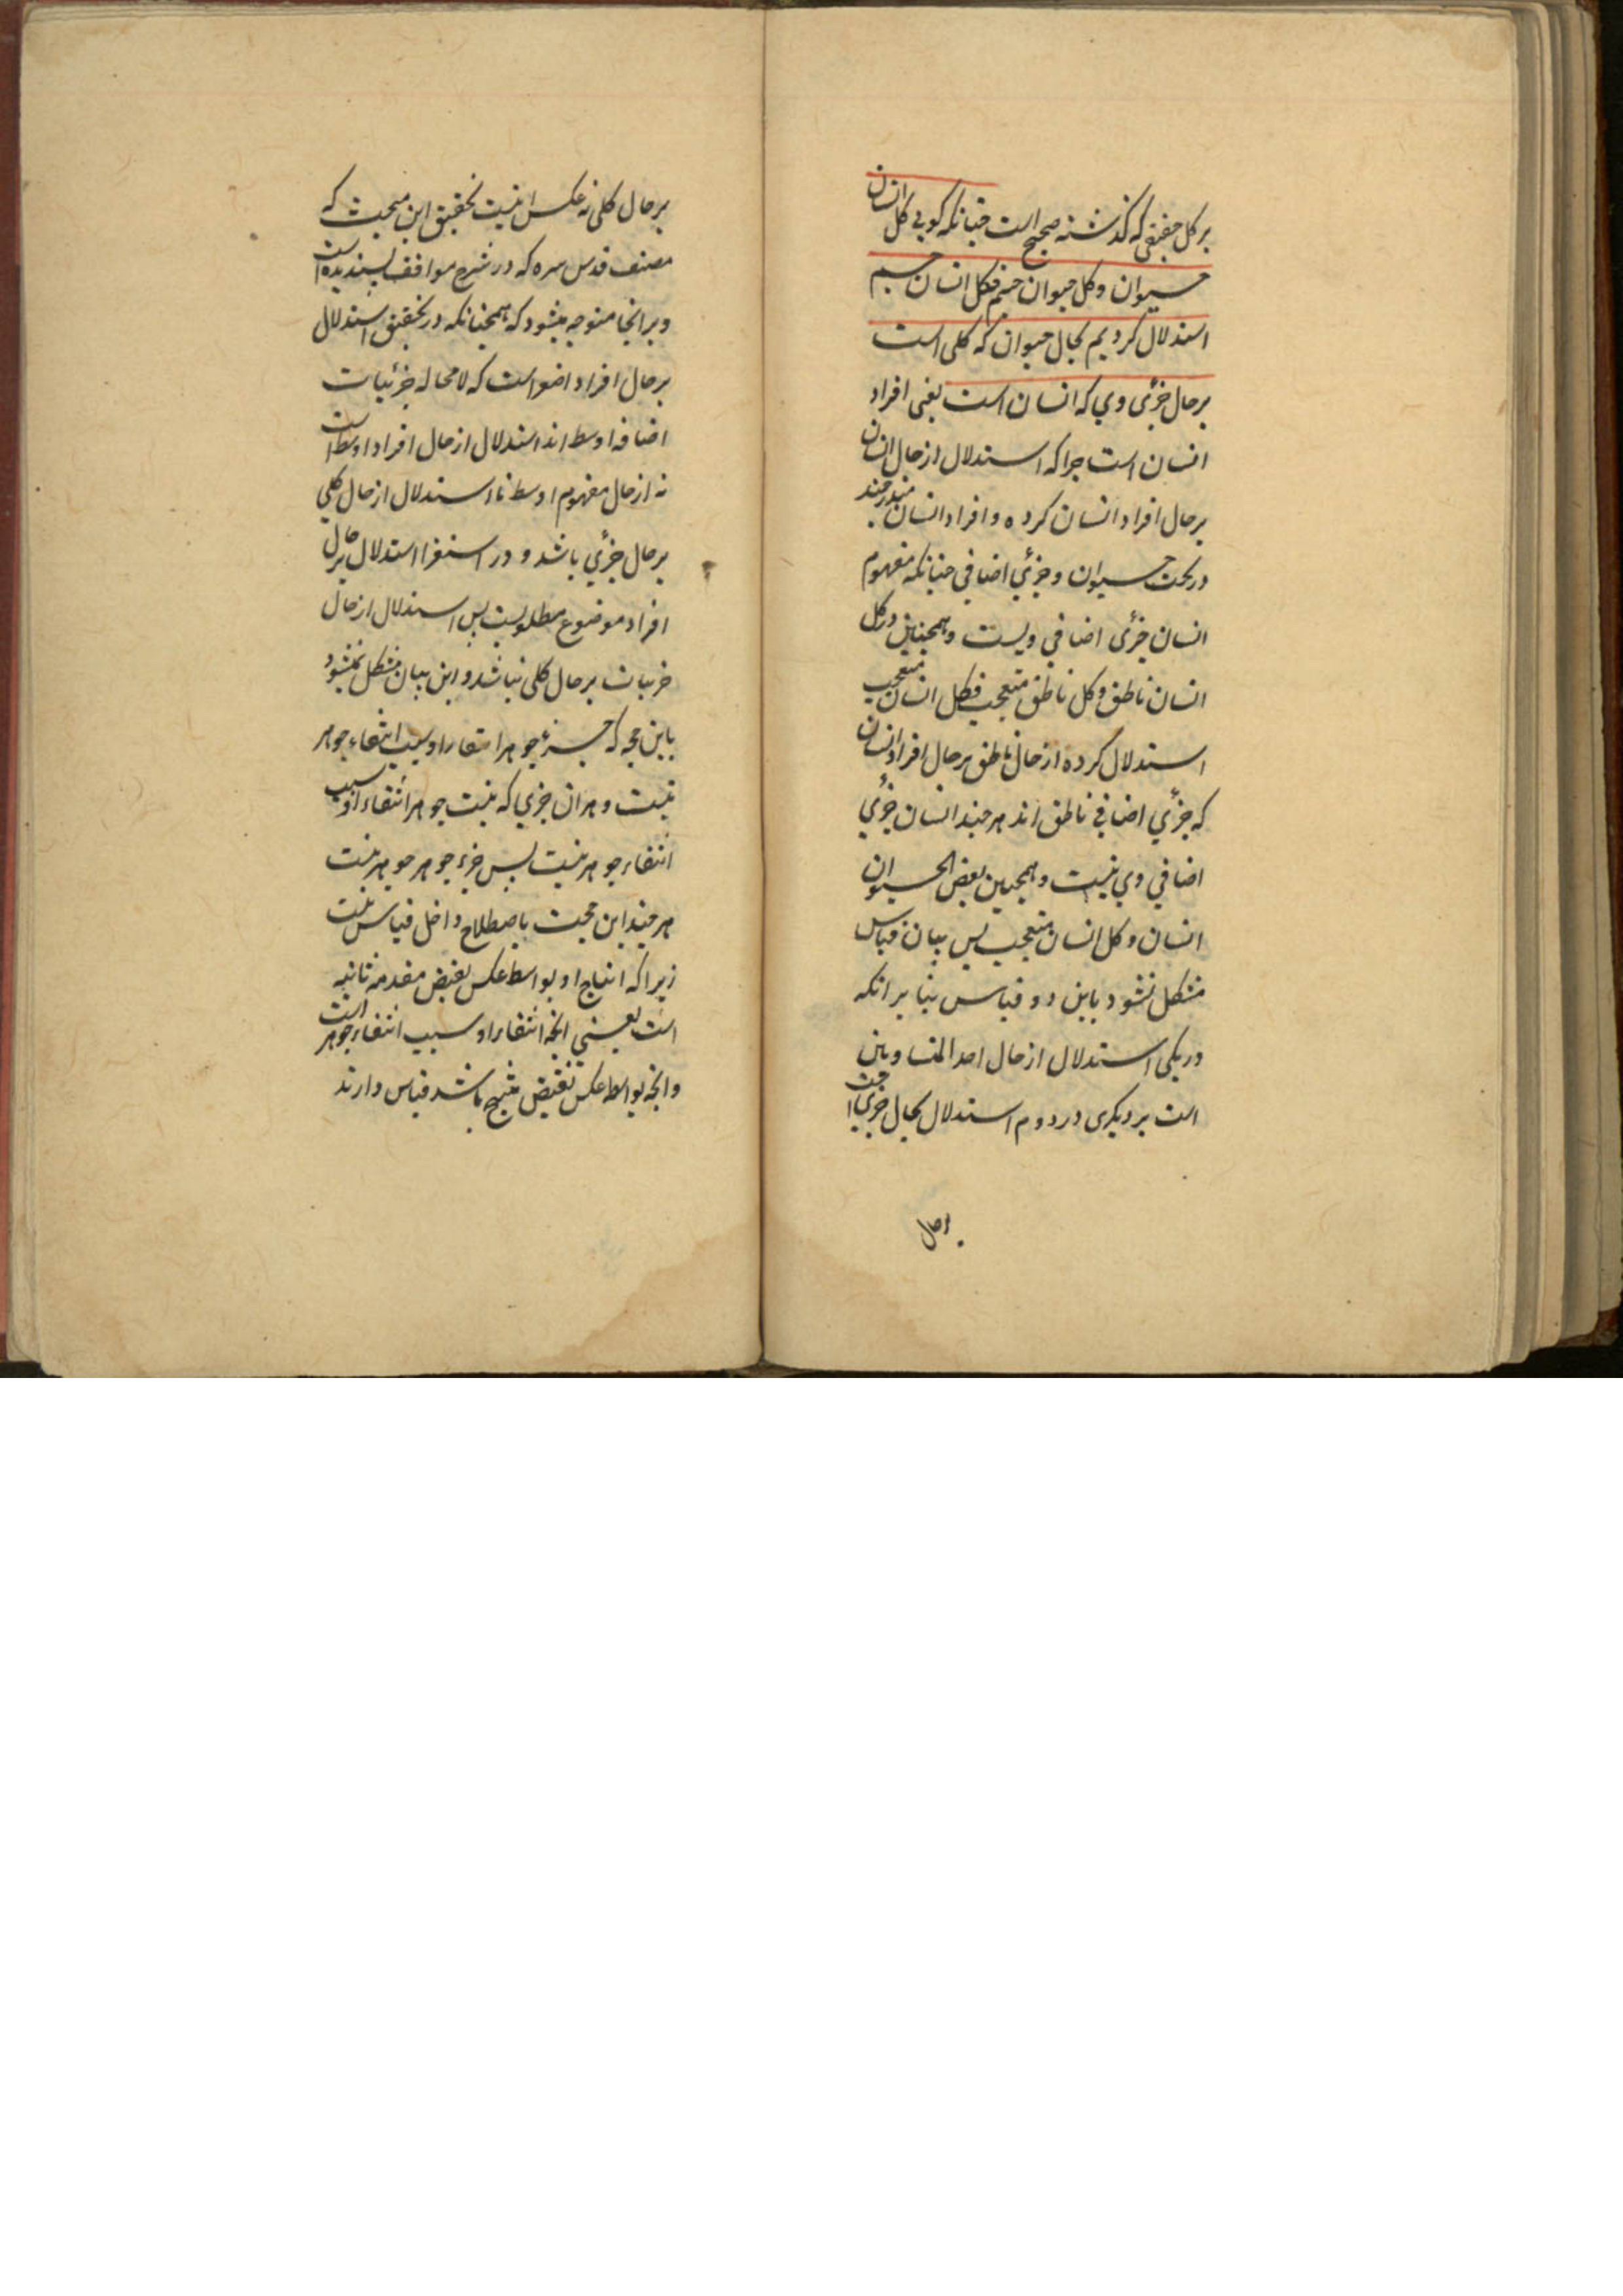 بر کل حقیقی که گذشته صحیح است چنانکه گویی کل انسان
حیوان و کل حیوان جسم فکل انسان جسم
استدلال کردیم بحال حیوان که کلی است
بر حال جزئی وی که انسان است یعنی افراد
انسان است چرا که استدلال از حال انسان
بر حال افراد انسان کرده و افراد انسان مندرجند
در تحت حیوان و جزئی اضافی چنانکه مفهوم
انسان جزئی اضافی ویست و همچنین در کل
انسان ناطق و کل ناطق متعجب فکل انسان متعجب
استدلال کرده از حال ناطق بر حال افراد انسان
که جزئی اضافی ناطق اند هر چند انسان جزئی
اضافی وی نیست و همچنین بعض الحیوان
انسان و کل انسان متعجب پس بیان قیاس
مشکل نشود باین دو قیاس بنا بر انکه
در یکی استدلال از حال احد المتساویین
است بر دیگری در دوم استدلال بحال جزئی است
بر حال
بر حال کلی نه عکس اینست تحقیق این مبحث که
مصنف قدس سره که در شرح مواقف پسندیده است
و بر انجا متوجه میشود که همچنانکه در تحقیق استدلال
بر حال افراد اصغر است که لا محاله جزئیات
اضافه اوسط اند استدلال از حال افراد اوسط است
نه از حال مفهوم اوسط تا استدلال از حال کلی
بر حال جزئی باشد و در استقرا استدلال بر حال
افراد موضوع مطلوبست پس استدلال از حال
جزئیات بر حال کلی نباشد و این بیان مشکل نمیشود
باین حجه که جزء جوهر انتفاء او سبب انتفاء جوهر
نیست و هر ان جزی که نیست جوهر انتفاء او سبب
انتفاء جوهر نیست پس جزء جوهر جوهر نیست
هر چند این حجت باصطلاح داخل قیاس نیست
زیرا که انتاج او بواسطه عکس نقیض مقدمه ثانیه
است یعنی انچه انتفاء او سبب انتفاء جوهر است
و انچه بواسطه عکس نقیض منتج باشد قیاس دارند